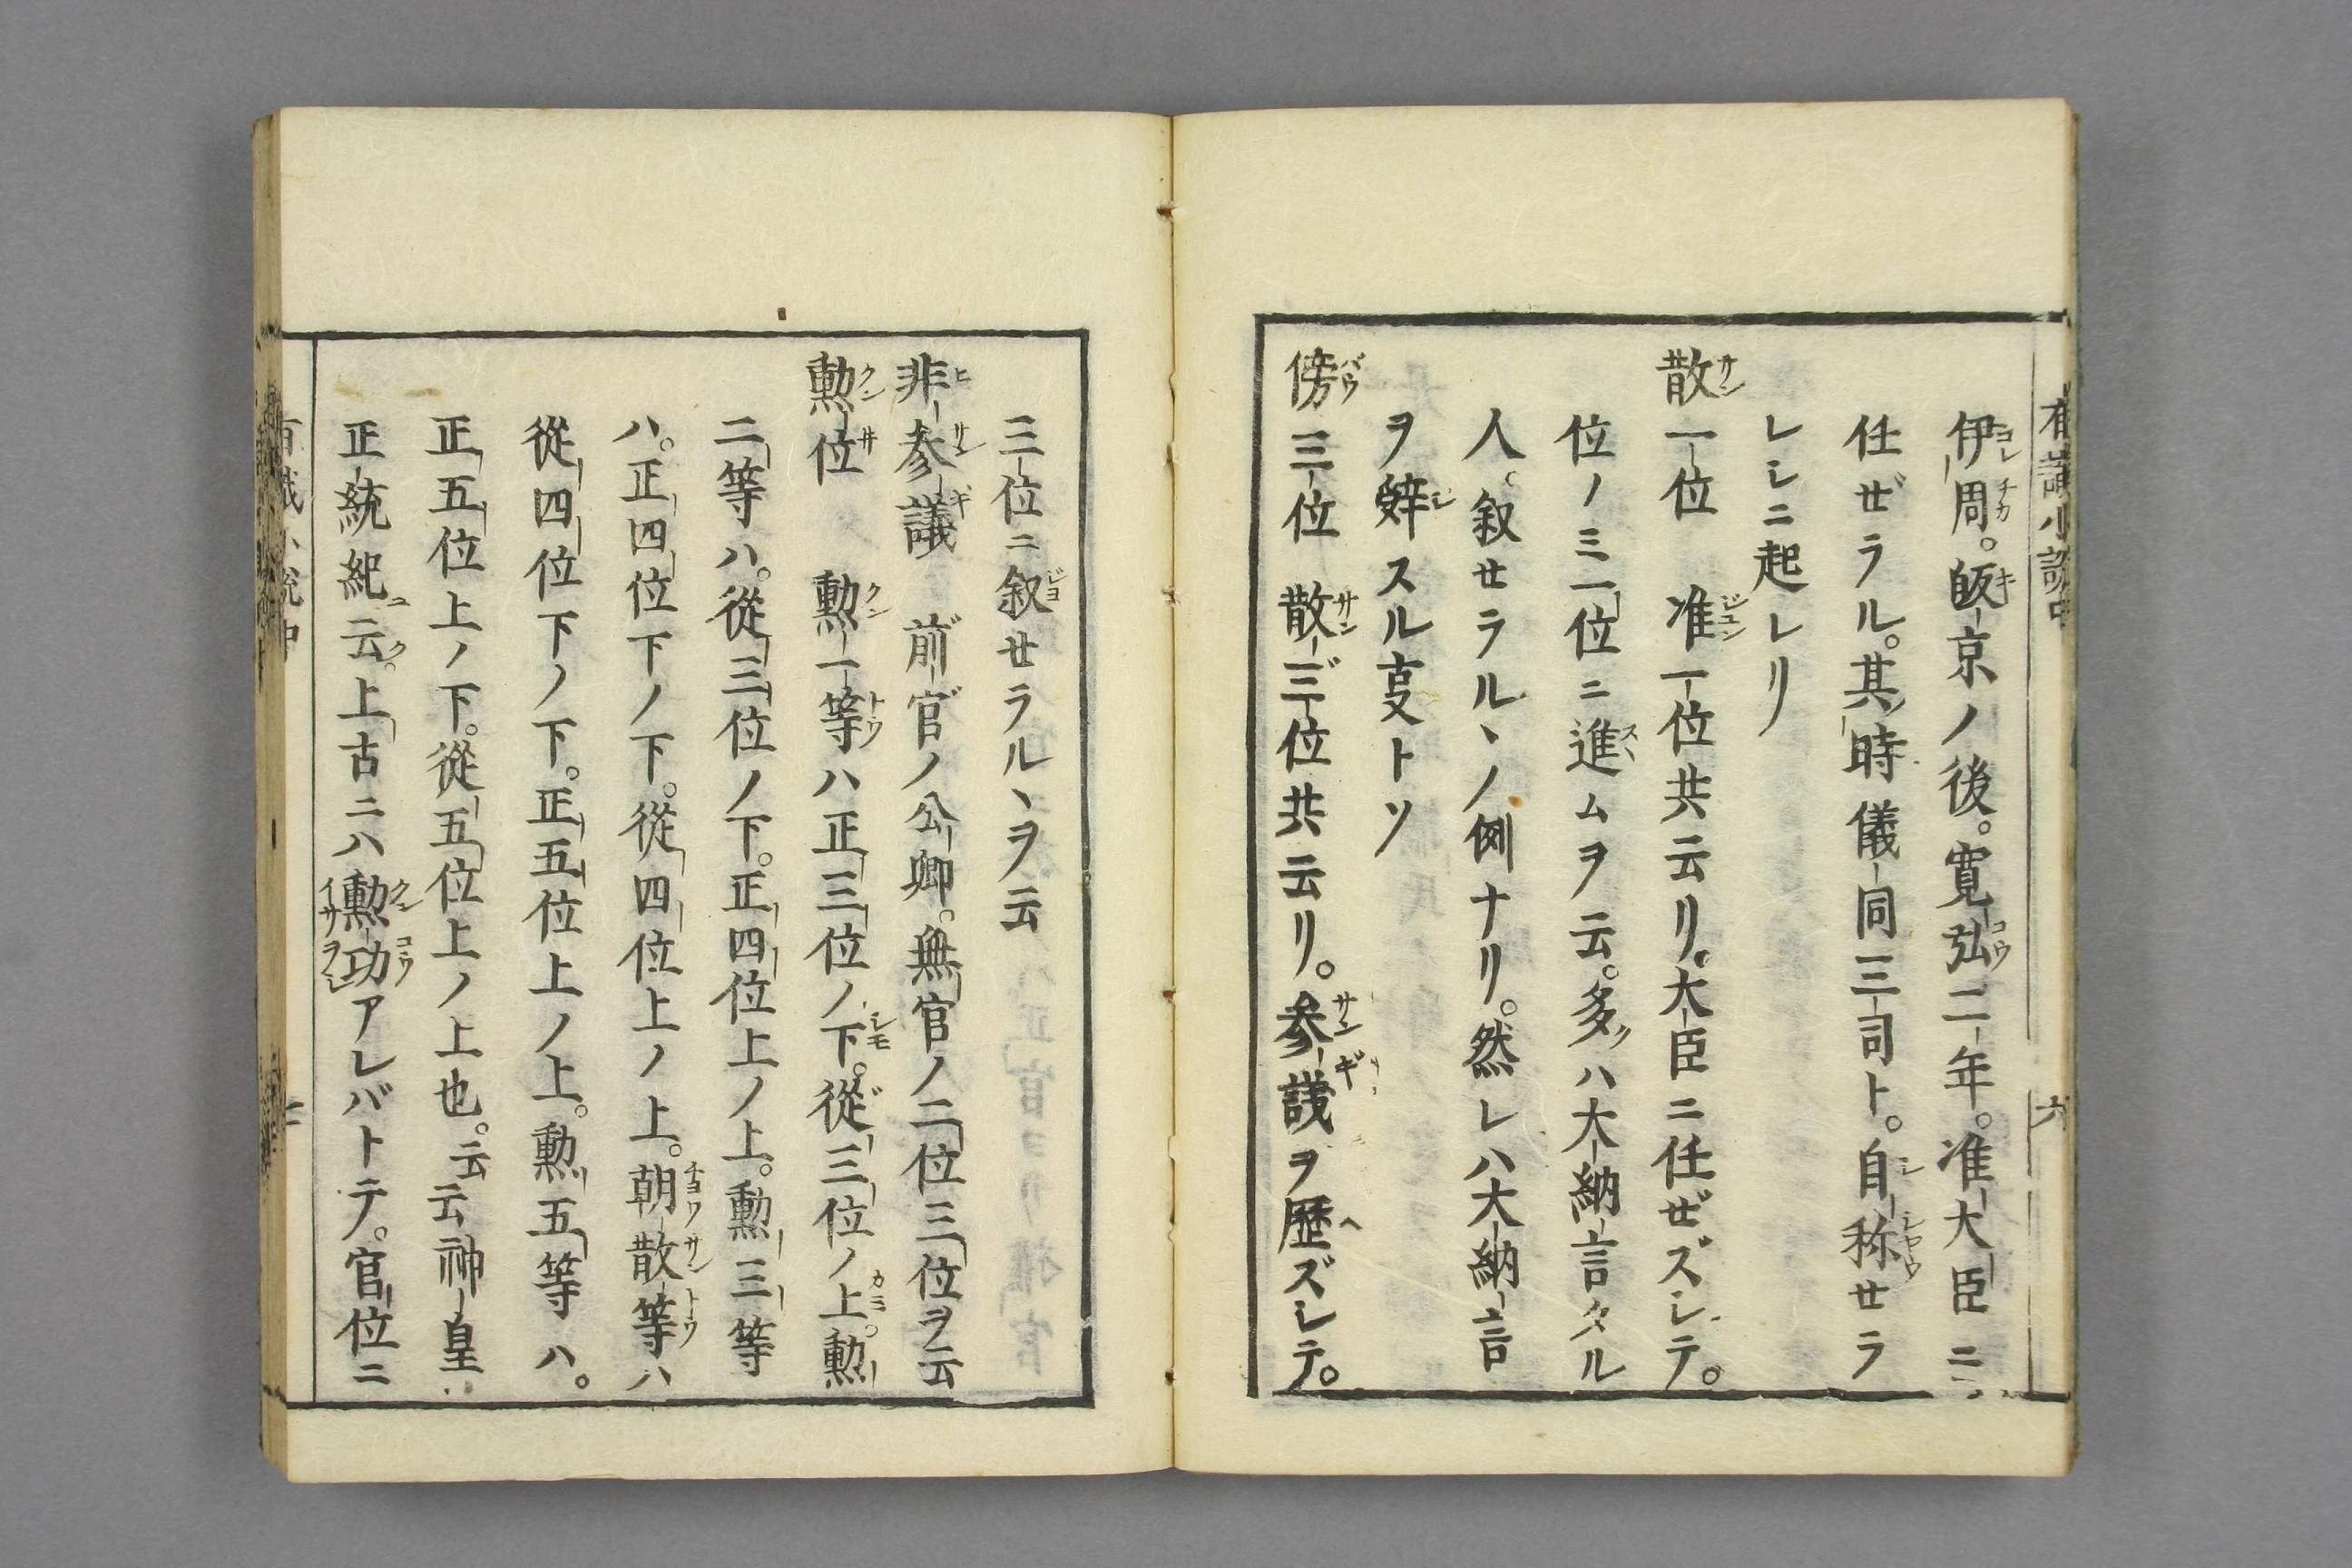 伊周。皈京ノ後。寛弘二年。准大臣ニ
任ぜラル。其時儀同三司ト。自称せラ
レシニ起レリ
散一位　准一位共云リ。大臣ニ任ぜズシテ。
位ノミ一位ニ進ムヲ云。多ハ大納言タル
人。叙せラルヽノ例ナリ。然レハ大納言
ヲ辤スル事トソ
傍三位　散三位共云リ。参議ヲ歴ズシテ。
六
三位ニ叙せラルヽヲ云
非参議　前官ノ公卿。無官ノ二位三位ヲ云
勲位　勲一等ハ正三位ノ下。從三位ノ上。勲
二等ハ。從三位ノ下。正四位上ノ上。勲三等
ハ。正四位下ノ下。從四位上ノ上。朝散等ハ
從四位下ノ下。正五位上ノ上。勲五等ハ。
正五位上ノ下。從五位上ノ上也。云云神皇
正統紀云。上古ニハ勲功アレバトテ。官位ニ